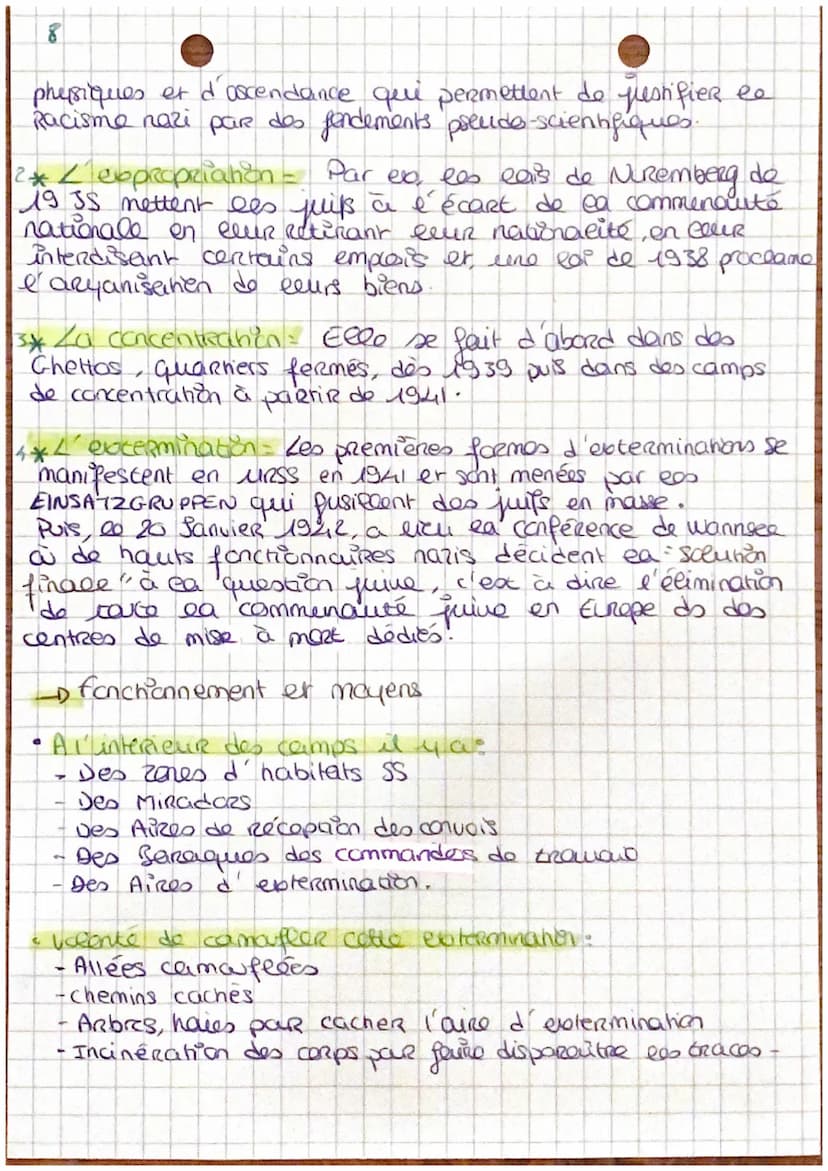 8
physiques et d'ascendance qui permettent de justifier le
Racisme nazi par des fondements pseudo-scientifiques.
2* L'expropriation = Par ex, les lois de Nuremberg de
1935 mettent les juifs à l'écart de la communauté
nationale en leur retirant leur nationalité, en leur
interdisant certains emplois et, une loi de 1938 proclame
l'aryanisation de leurs biens.
3* La concentration = Elle se fait d'abord dans des
Ghettos, quartiers fermés, dès 1939 puis dans des camps
de concentration à partir de 1941.
4* L'extermination = Les premières formes d'exterminations se
manifestent en URSS en 1941 et sont menées par les
EINSATZGRUPPEN qui fusillent des juifs en masse.
Puis, le 20 Janvier 1942, a lieu la conférence de Wannsee
où de hauts fonctionnaires nazis décident la "solution
finale" à la "question juive, c'est à dire l'élimination
de toute la communauté juive en Europe ds des
centres de mise à mort dédiés.
→ fonctionnement et moyens
• A l'intérieur des camps il y a :
- Des zones d'habitats SS
- Des Miradors
- Des Aires de réception des convois
- Des Baraques des commandos de travaux
- Des Aires d'extermination.
• Volonté de camoufler cette extermination :
- Allées camouflées
- chemins cachés
- Arbres, haies pour cacher l'aire d'extermination
- Incinération des corps pour faire disparaître les traces -